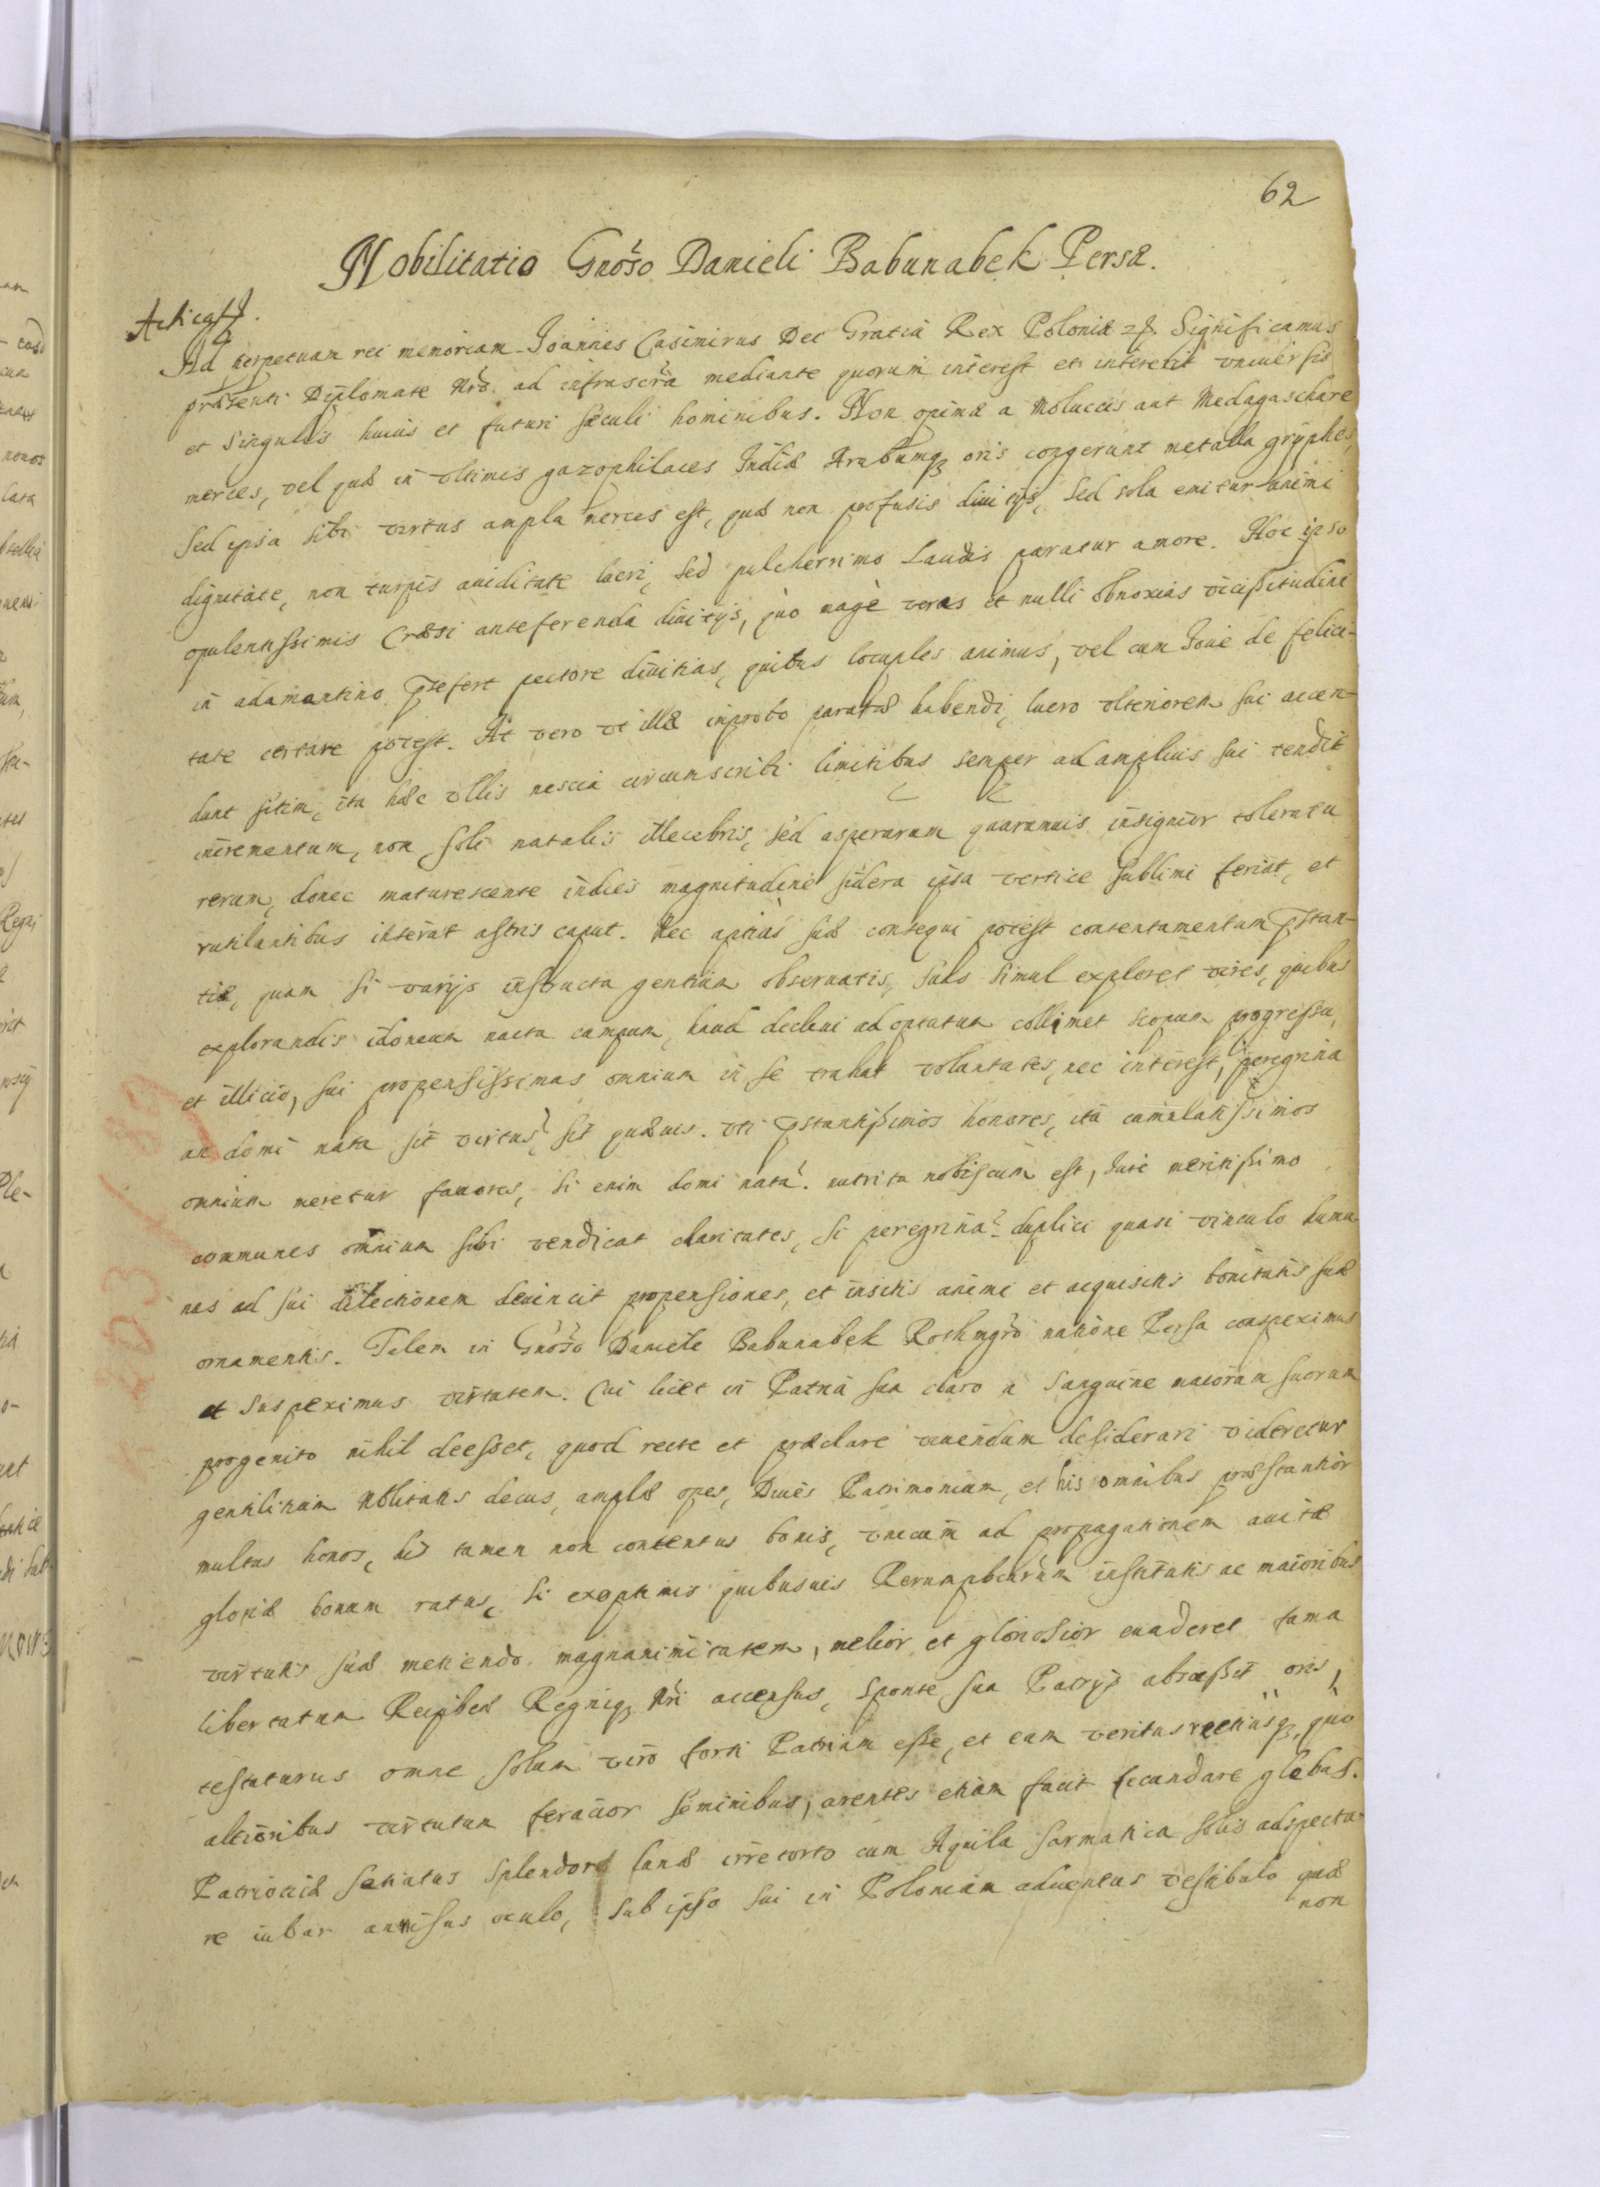 62
Nobilitatio Gnoso Danieli Babunabek Persæ.
Ad perpetuam rei memoriam Joannes Casimirus Dei Gratia Rex Poloniæ Significamus
præsenti Diplomate Nro ad infrascra mediante quorum interest et intererit vniuersis
et Singulis huius et futuri sæculi hominibus. Non opimæ a Moluccis aut Medagaschare
merces, vel quæ in vltimis gazophilaces Indiæ Arabumq oris congerunt metalla gryphes,
Sed ipsa sibi virtus ampla merces est, quæ non profusis diuitijs, sed sola emitur animi
dignitate, non turpis auiditate lucri, sed pulcherrimo Laudis paratur amore. Hoc ipso
opulentissimis Cræsi anteferenda diuitijs, quo magè veras et nulli obnoxias vicissitudini
in adamantino præfert pectore diuitias, quibus locuples animus, vel cum Joue de felici-
tate certare potest. At vero vt illæ improbo paratæ habendi, lucro vlteriorem sui accen-
dunt sitim, ita hæc vllis nescia circumscribi limitibus semper ad amplius sui tendit
incrementum, non soli natalis illecebris, sed asperarum quarumuis insignior toleratu
rerum, donec maturescente indies magnitudine sidera ipsa vertice sublimi feriat, et
rutilantibus inserat astris caput. Nec aptius suæ consequi potest contentamentum pstan-
tiæ, quam si varijs instructa gentium obseruatis, suas simul exploret vires, quibus
explorandis idoneum nacta campum, haud decliui ad optatum collimet scopum progressu,
et illicio, sui propensissimas omnium in se trahat voluntates, nec interest, peregrina
an domi nata sit virtus, sit quæuis. vti pstantissimos honores, ita cumulatissimos
omnium meretur fauores, si enim domi nata. nutrita nobiscum est, Jure meritissimo
communes omnium sibi vendicat claritates, si peregrina duplici quasi vinculo huma
nas ad sui dilectionem deuincit propensiones, et insitis animi et acquisitis bonitatis suæ
ornamentis. Talem in Gnoso Daniele Babunabek natione Persa conspeximus
et suspeximus virtutem. Cui licet in Patria sua claro a Sanguine maiorum suorum
progenito nihil deesset, quod recte et præclare viuendum desiderari videretur
gentilitium Nblitatis decus, amplæ opes, Diues Patrimonium, et his omnibus præstantior
multus honos, his tamen non contentus bonis, vnicum ad propagationem auitæ
gloriæ bonum ratus, si ex optimis quibusuis institutis ac maioribus
virtutis suæ metiendo magnanimitatem, melior et gloriosior euaderet fama
libertatum Reipbcæ Regniq Nri accensus, sponte sua Patrijs abscessit oris,
testaturus omne solum viro forti Patriam esse, et eam veritus rectiusq, quo
altioribus virtutum feracior seminibus, arentes etiam facit fecundare glebas.
Patriotici satiatus splendore lunæ irretorto cum Aquila sarmatica solis adspecta-
re iubar annisus oculo, sub ipso sui in Poloniam aduentus vestibulo quæ
non